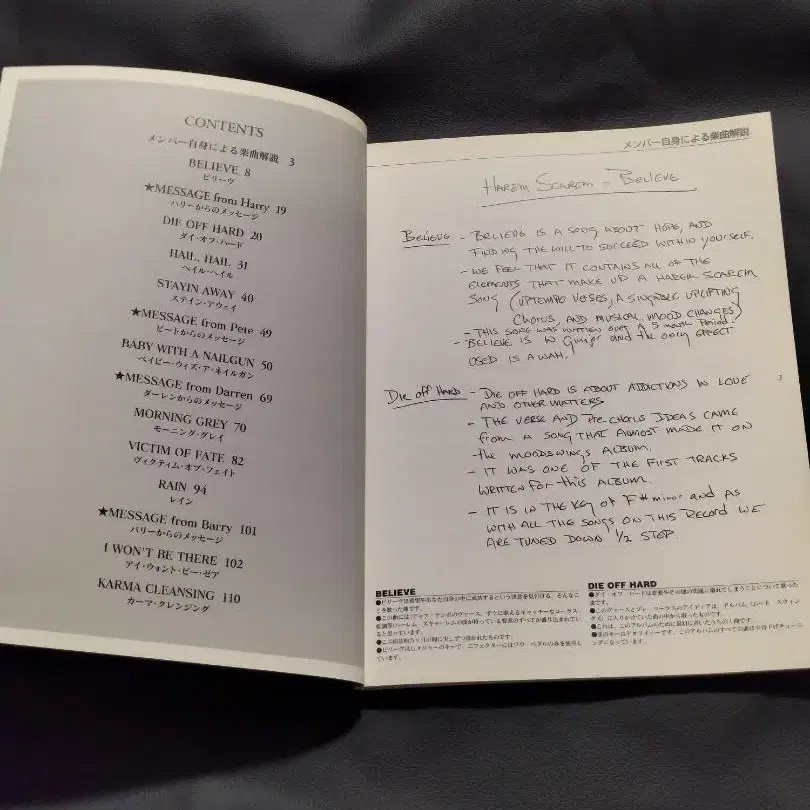 CONTENTS
メンバー自身による楽曲解説 3
BELIEVE 8
ビリーヴ
★MESSAGE from Harry 19
ハリーからのメッセージ
DIE OFF HARD 20
ダイ・オフ・ハード
HAIL, HAIL 31
ヘイル・ヘイル
STAYIN AWAY 40
ステイン・アウェイ
★MESSAGE from Pete 49
ピートからのメッセージ
BABY WITH A NAILGUN 50
ベイビー・ウィズ・ア・ネイルガン
★MESSAGE from Darren 69
ダーレンからのメッセージ
MORNING GREY 70
モーニング・グレイ
VICTIM OF FATE 82
ヴィクティム・オブ・フェイト
RAIN 94
レイン
★MESSAGE from Barry 101
バリーからのメッセージ
I WON'T BE THERE 102
アイ・ウォント・ビー・ゼア
KARMA CLEANSING 110
カーマ・クレンジング
メンバー自身による楽曲解説
HAREM SCAREM - BELIEVE
BELIEVE - BELIEVE IS A SONG ABOUT HOPE, AND
FINDING THE WILL TO SUCCEED WITHIN YOURSELF.
- WE FEEL THAT IT CONTAINS ALL OF THE
ELEMENTS THAT MAKE UP A HAREM SCAREM
SONG (UPTEMPO VERSES, A SINGABLE UPLIFTING
CHORUS, AND MUSICAL MOOD CHANGES)
- THIS SONG WAS WRITTEN OVER A 5 month Period.
- BELIEVE IS IN Gmajor and the only EFFECT
USED IS A WAH.
DIE OFF HARD - DIE OFF HARD IS ABOUT ADDICTIONS IN LOVE
AND OTHER MATTERS
- THE VERSE AND PRE-CHORUS IDEAS CAME
from A SONG THAT ALMOST MADE IT ON
the MOODSWINGS ALBUM.
- IT WAS ONE OF THE FIRST TRACKS
WRITTEN for this ALBUM.
- IT IS IN THE KEY OF F# minor and AS
WITH ALL THE SONGS ON THIS RECORD WE
ARE TUNED DOWN 1/2 STEP.
3
BELIEVE
DIE OFF HARD